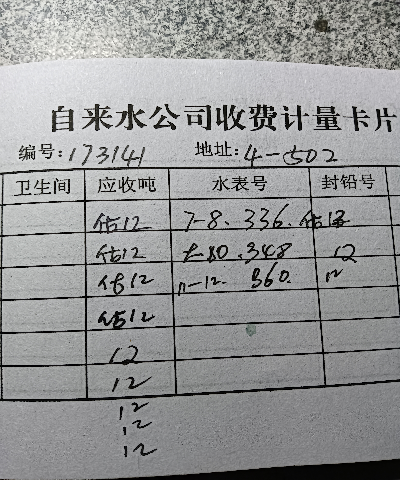 自来水公司收费计量卡片
编号:173141 地址:4-502
卫生间 应收吨 水表号 封铅号
估12 7-8. 336. 估12
估12 348 12
估12 11-12. 360. 12
估12
12
12
12
12
12